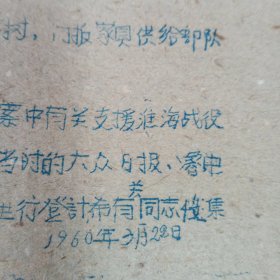 村，门板家具供给部队
案中有关支援淮海战役
当时的大众日报、署中
进行登計希有关同志傻集
1960年3月22日